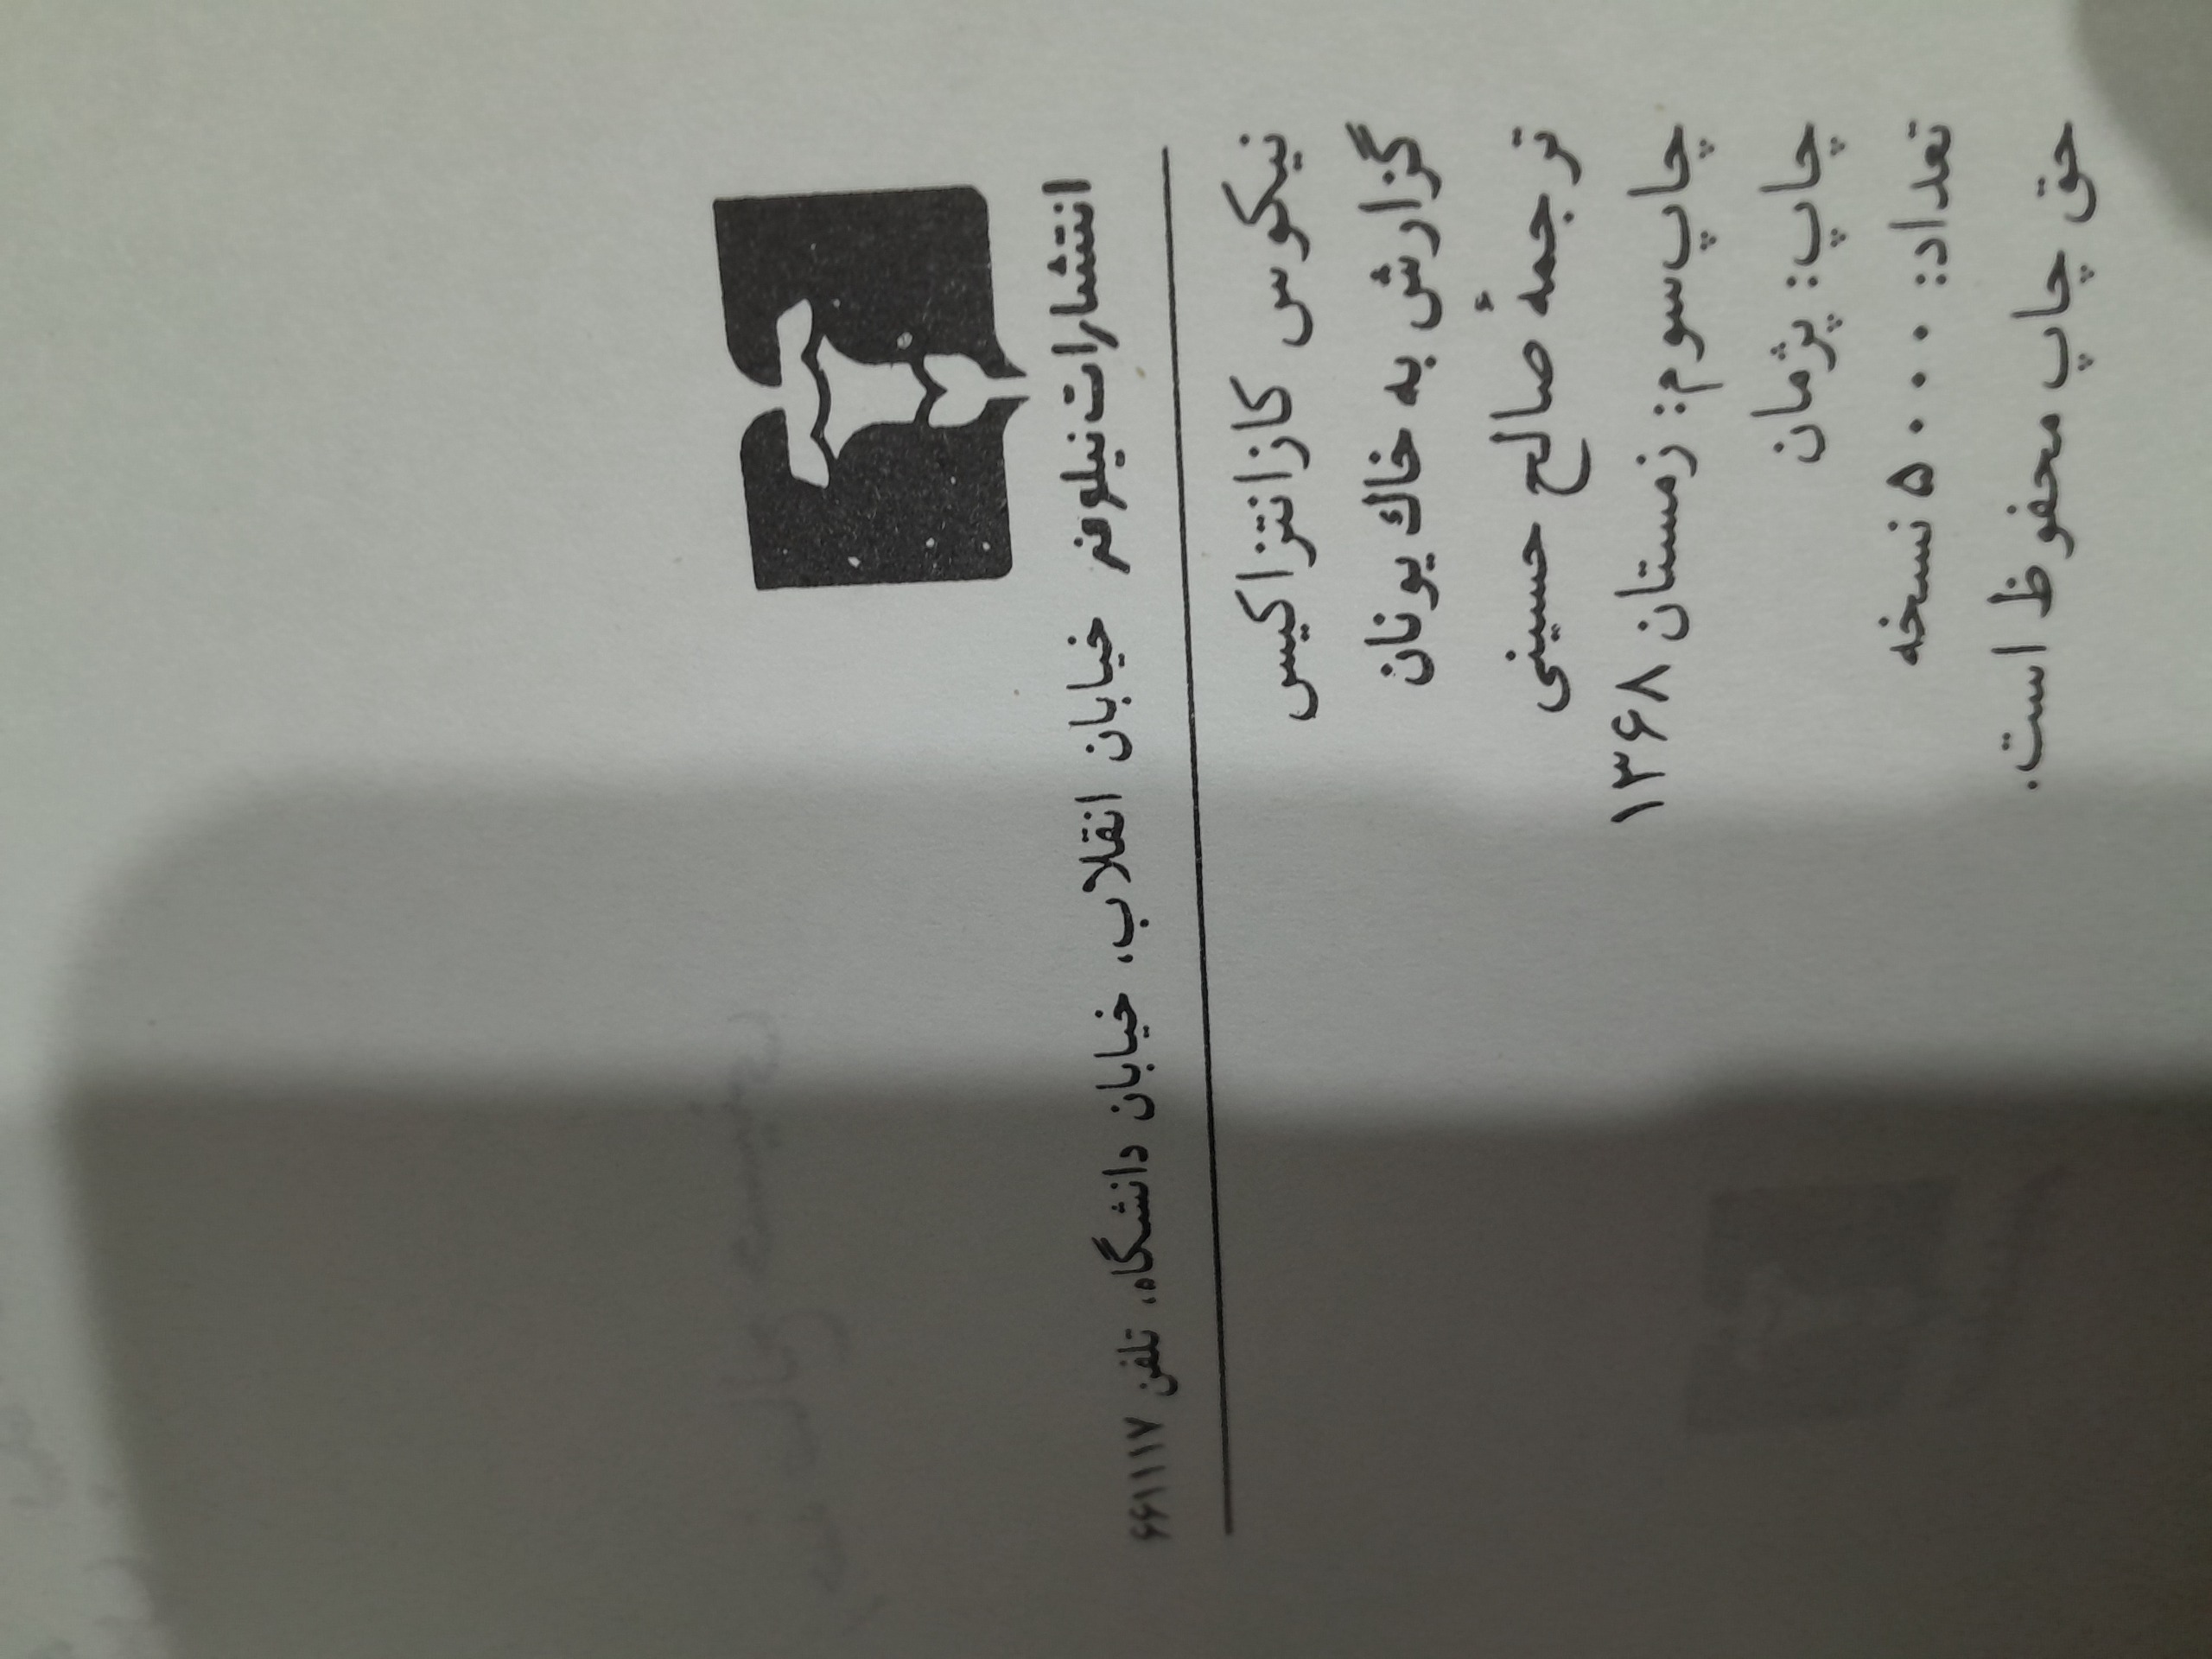 انتشارات نیلوفر خیابان انقلاب، خیابان دانشگاه، تلفن ۶۶۱۱۱۷
نیکوس کازانتزاکیس
گزارش به خاك یونان
ترجمهٔ صالح حسینی
چاپ سوم: زمستان ۱۳۶۸
چاپ: پژمان
تعداد: ۵۰۰۰ نسخه
حق چاپ محفوظ است.